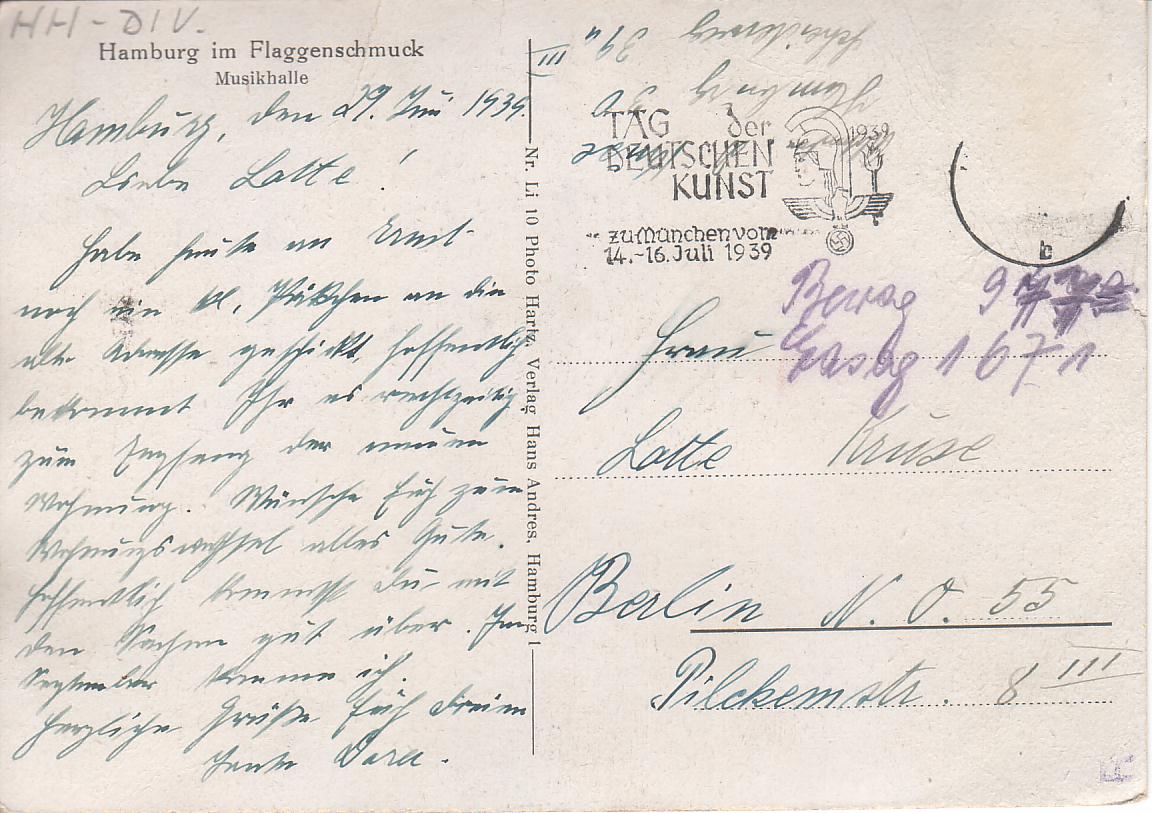 HH - DIV.
Hamburg im Flaggenschmuck
Musikhalle
Hamburg, den 29. Juni 1939.
Liebe Lotte!
Habe heute an Ernst
noch ein kl. Päckchen an die
alte Adresse geschickt, hoffentlich
bekommt Ihr es rechtzeitig
zum Empfang der neuen
Wohnung. Wünsche Euch zum
Wohnungswechsel alles Gute.
Hoffentlich kommst Du mit
den Sachen gut über. Im
September komme ich.
Herzliche Grüße Euch Dreien
Tante Dora.
Nr. Li 10 Photo Hartz, Verlag Hans Andres, Hamburg 1
III
39
Hamburg
TAG der
DEUTSCHEN
KUNST
1939
zu München vom
14.-16. Juli 1939
b
Bewag 9
Gasag 1 671
Frau
Lotte Kruse
Berlin N. O. 55
Pilckemstr. 8 III